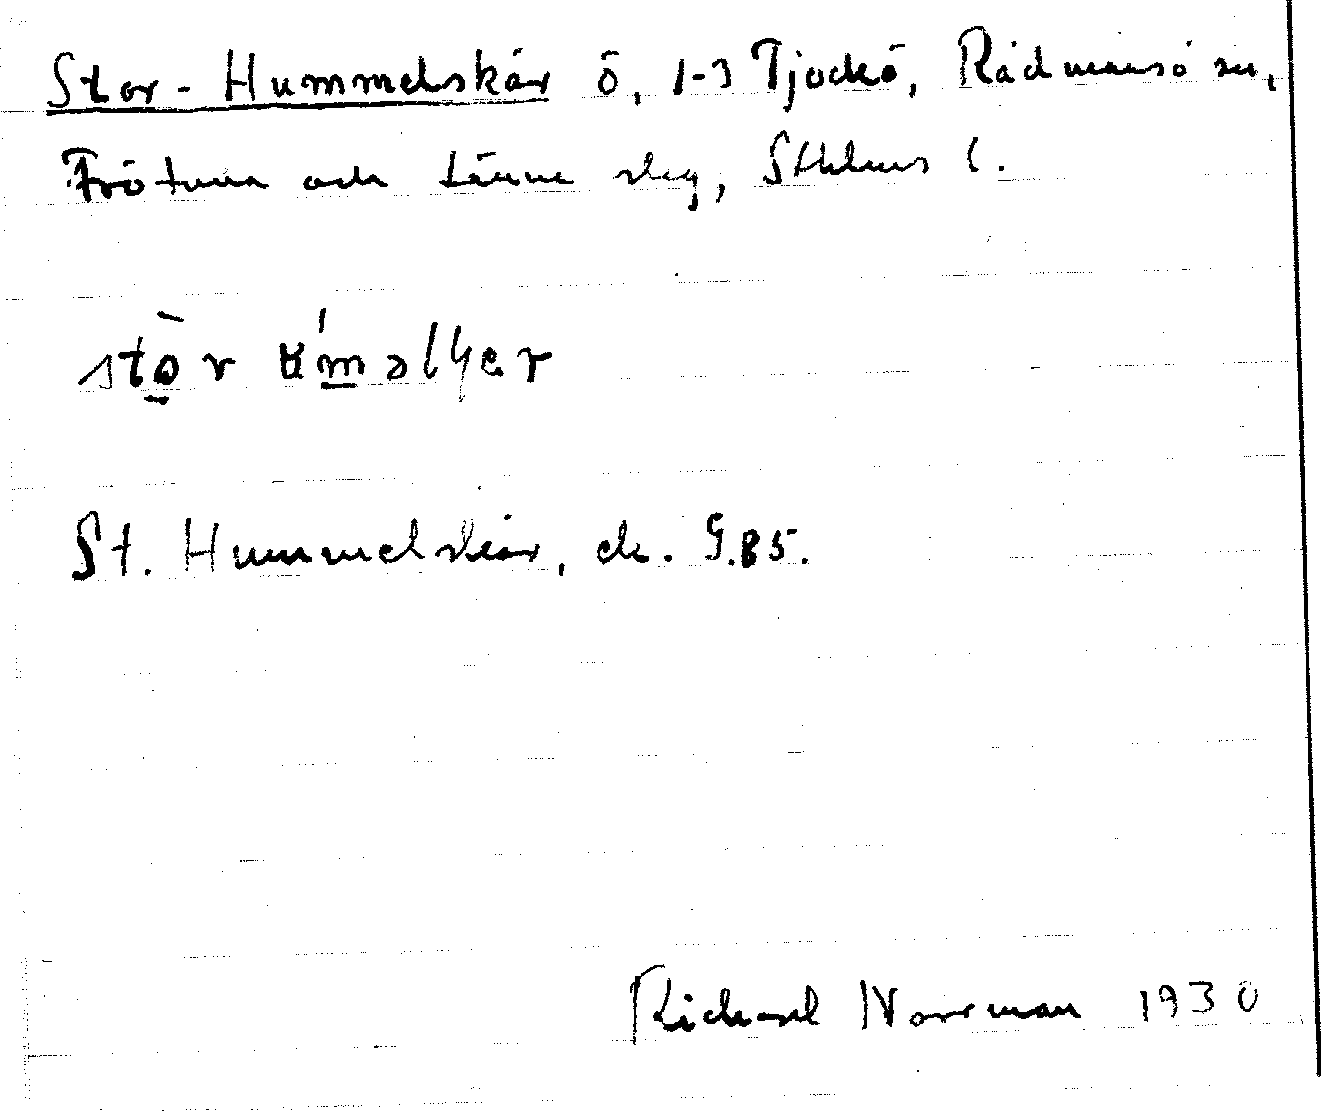 Stor-Hummelskär ö, 1-3 Tjockö, Rådmansö sn,
Frötuna och Länna skg, Sthlms l.
St. Hummelskär, ek. G.85.
Richard Norrman 1930